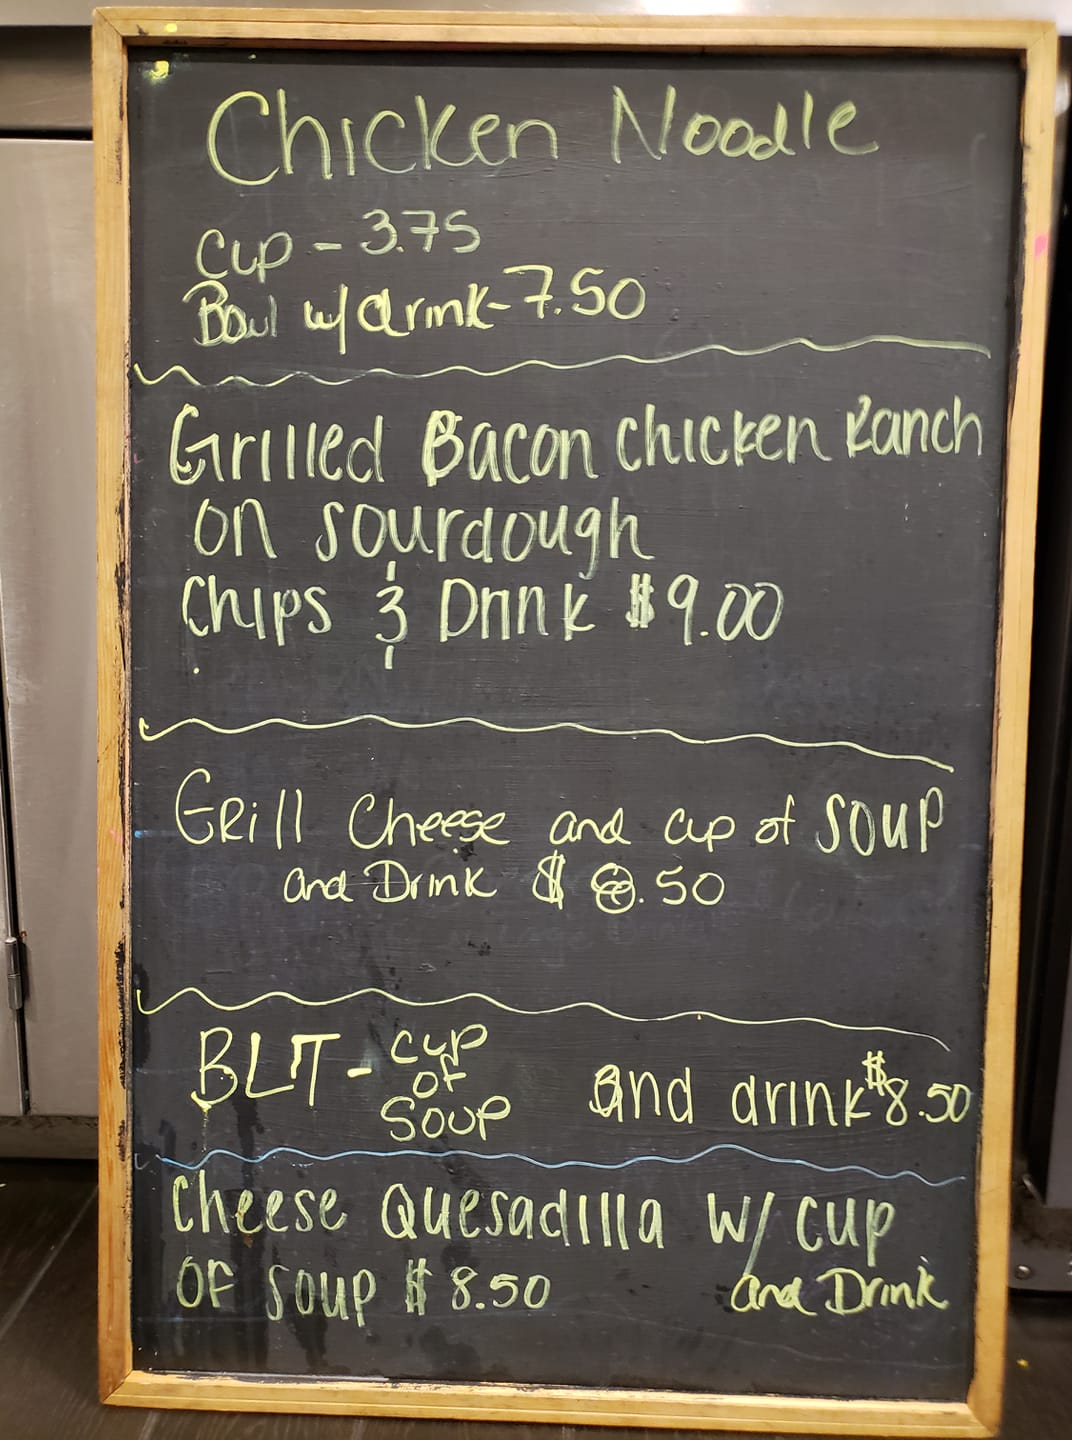 Chicken Noodle
Cup - 3.75
Bowl w/ drink - 7.50
Grilled Bacon chicken Ranch
on sourdough
Chips & Drink $9.00
Grill Cheese and cup of soup
and Drink $ .50
BLT - cup of soup and drink $8.50
Cheese Quesadilla w/ cup
of soup $8.50 and Drink